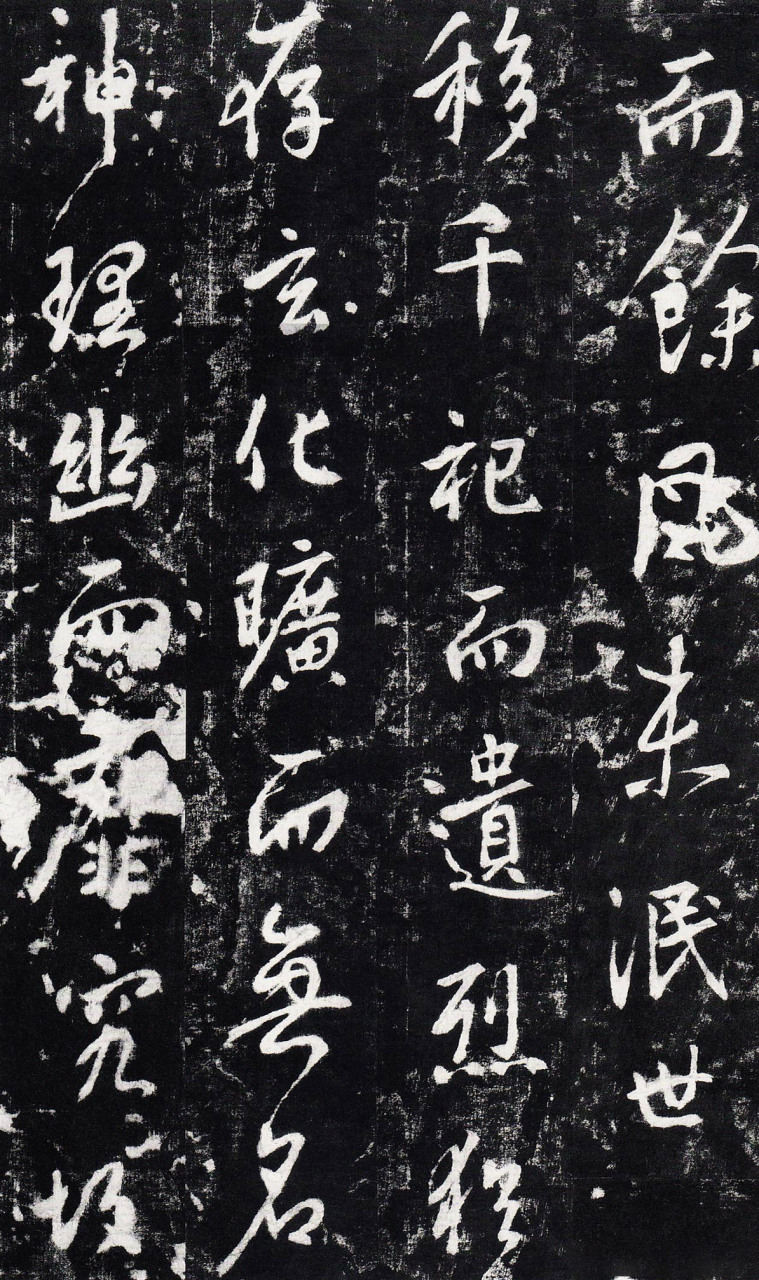 而餘風未泯世
移千祀而遺烈猶
存玄化曠而無名
神理幽而靡究故